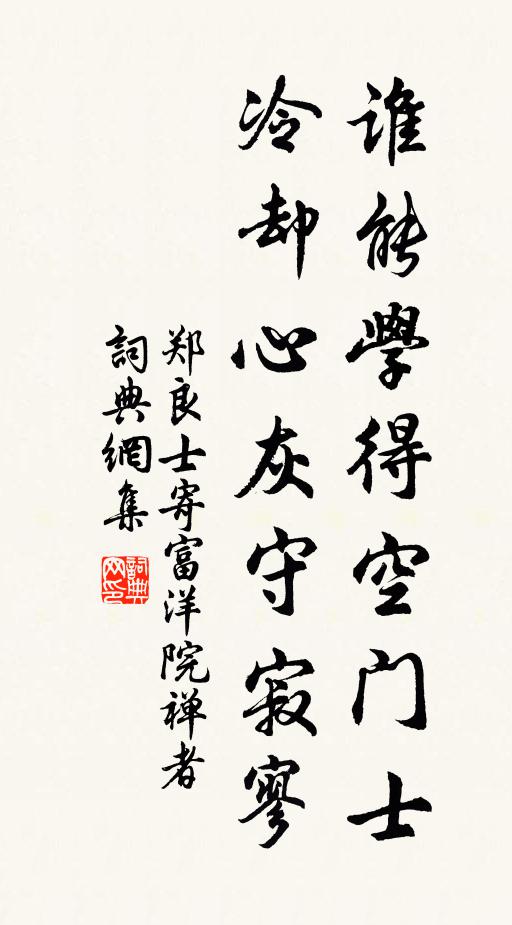 谁能學得空门士
冷却心灰守寂寥
郑良士寄富洋院禅者
詞典網集
詞典网印